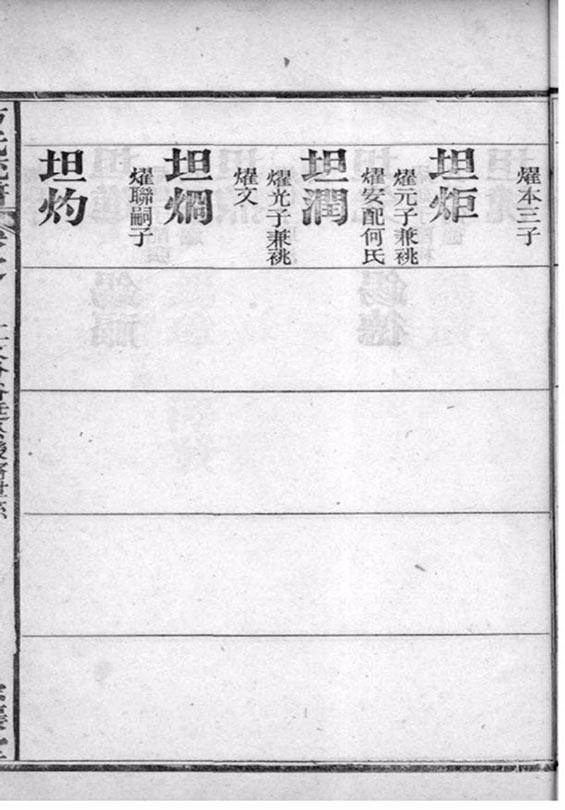 燿本三子
坦炬
燿元子兼祧
燿安配何氏
坦潤
燿光子兼祧
燿文
坦
燿聯嗣子
坦灼